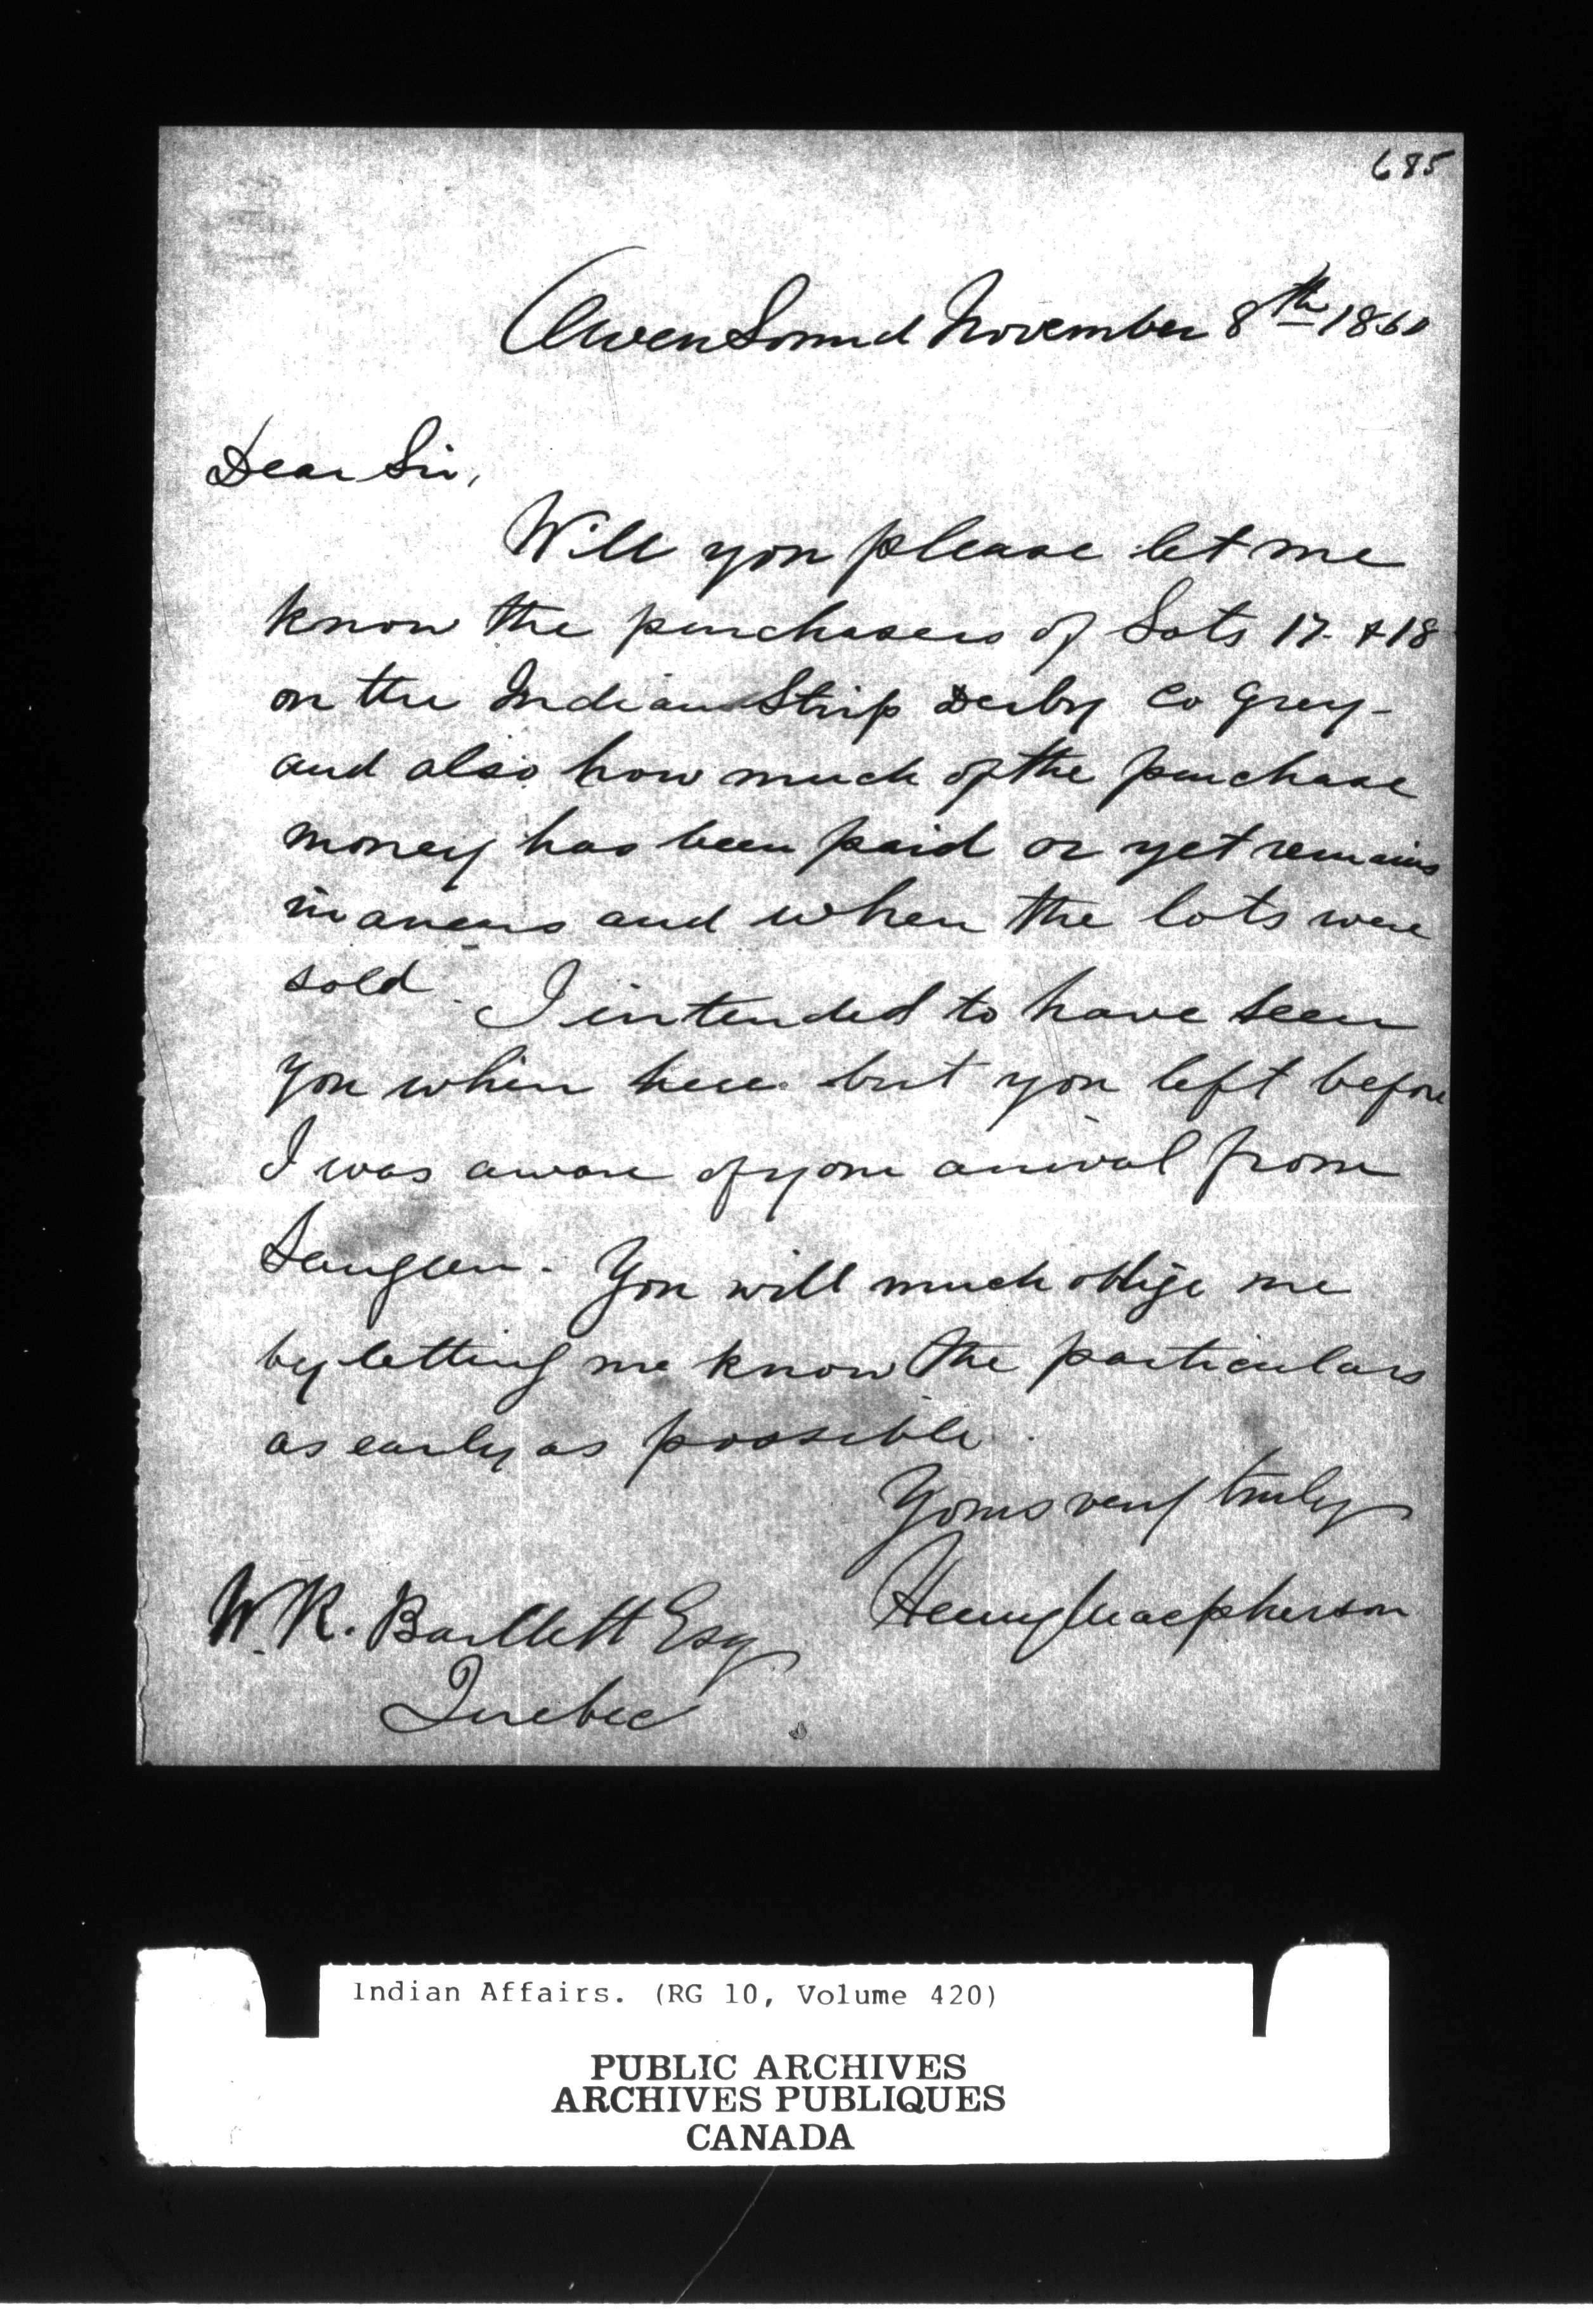 685
Owen Sound November 8th 1860
Dear Sir,
Will you please let me
know the purchasers of Lots 17 & 18
on the Indian Strip Derby Co Grey -
and also how much of the purchase
money has been paid or yet remains
in arrears and when the lots were
sold. I intended to have seen
you when here but you left before
I was aware of your arrival from
Saugeen. You will much oblige me
by letting me know the particulars
as early as possible.
Yours very truly
Henry Macpherson
W. R. Bartlett Esq
Quebec
Indian Affairs. (RG 10, Volume 420)
PUBLIC ARCHIVES
ARCHIVES PUBLIQUES
CANADA